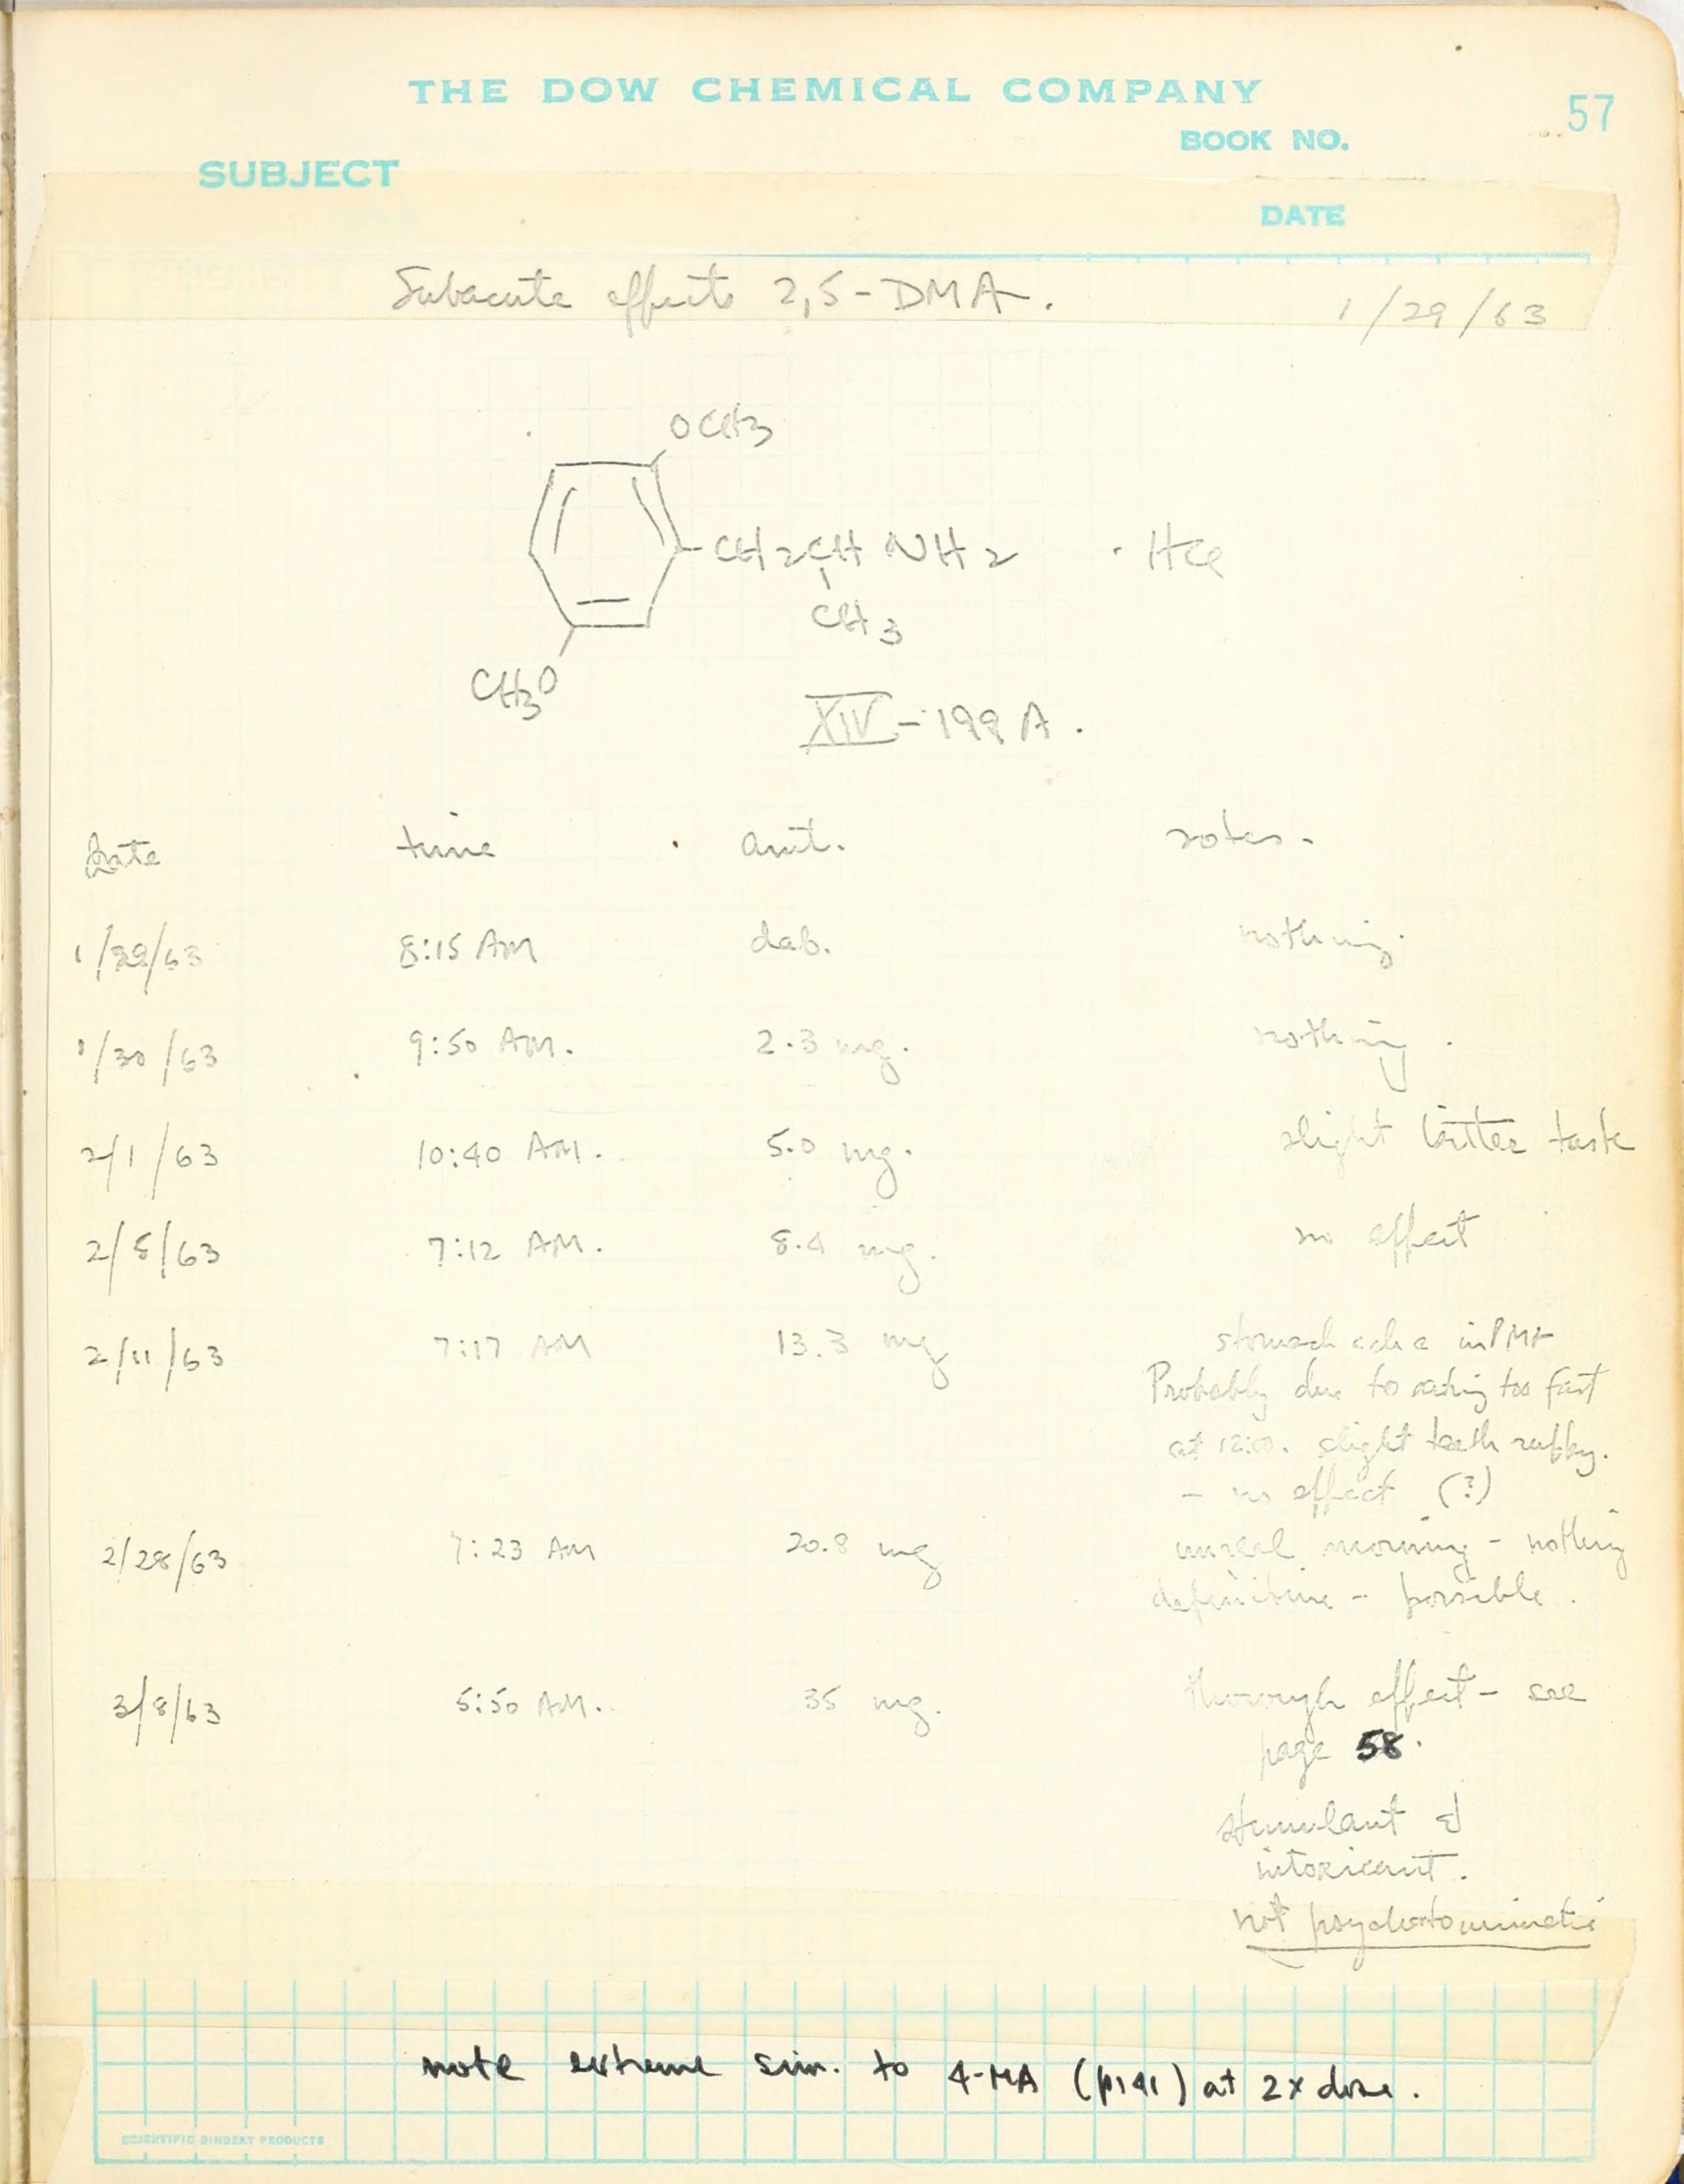 THE DOW CHEMICAL COMPANY
57
BOOK NO.
SUBJECT
DATE
Subacute effects 2,5-DMA.
1/29/63
OCH3
CH2CHNH2 · HCl
CH3
CH3O
XIV-199A.
Date time amt. notes.
1/29/63 8:15 AM dab. nothing.
1/30/63 9:50 AM. 2.3 mg. nothing.
2/1/63 10:40 AM. 5.0 mg. slight bitter taste
2/5/63 7:12 AM. 8.4 mg. no effect
2/11/63 7:17 AM 13.3 mg stomach ache in PM
Probably due to eating too fast
at 12:00. slight teeth rubby.
- no effect (?)
2/28/63 7:23 AM 20.8 mg unreal morning - nothing
definitive - possible.
3/8/63 5:50 AM. 35 mg. thorough effect - see
page 58.
stimulant &
intoxicant.
not psychotomimetic
note extreme sim. to 4-MA (p141) at 2x dose.
SCIENTIFIC BINDERY PRODUCTS